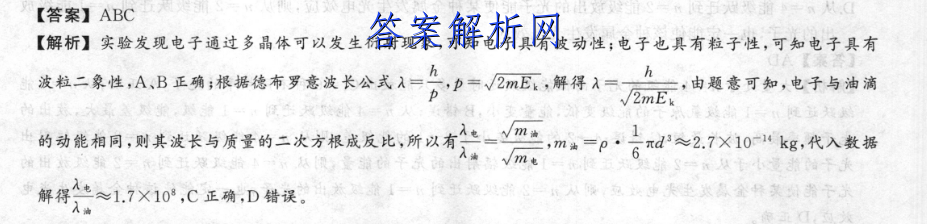 【答案】ABC
答案解析网
【解析】实验发现电子通过多晶体可以发生衍射现象,可知电子具有波动性;电子也具有粒子性,可知电子具有
波粒二象性,A、B正确;根据德布罗意波长公式λ=h/p,p=√(2mE_k),解得λ=h/√(2mE_k),由题意可知,电子与油滴
的动能相同,则其波长与质量的二次方根成反比,所以有λ_电/λ_油=√m_油/√m_电,m_油=ρ·1/6πd³≈2.7×10⁻¹⁴ kg,代入数据
解得λ_电/λ_油≈1.7×10⁸,C正确,D错误。